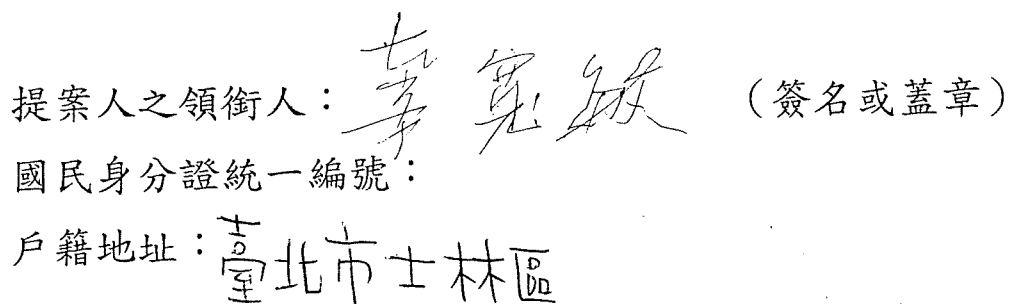 提案人之領銜人：辜寬敏（簽名或蓋章）
國民身分證統一編號：
戶籍地址：臺北市士林區